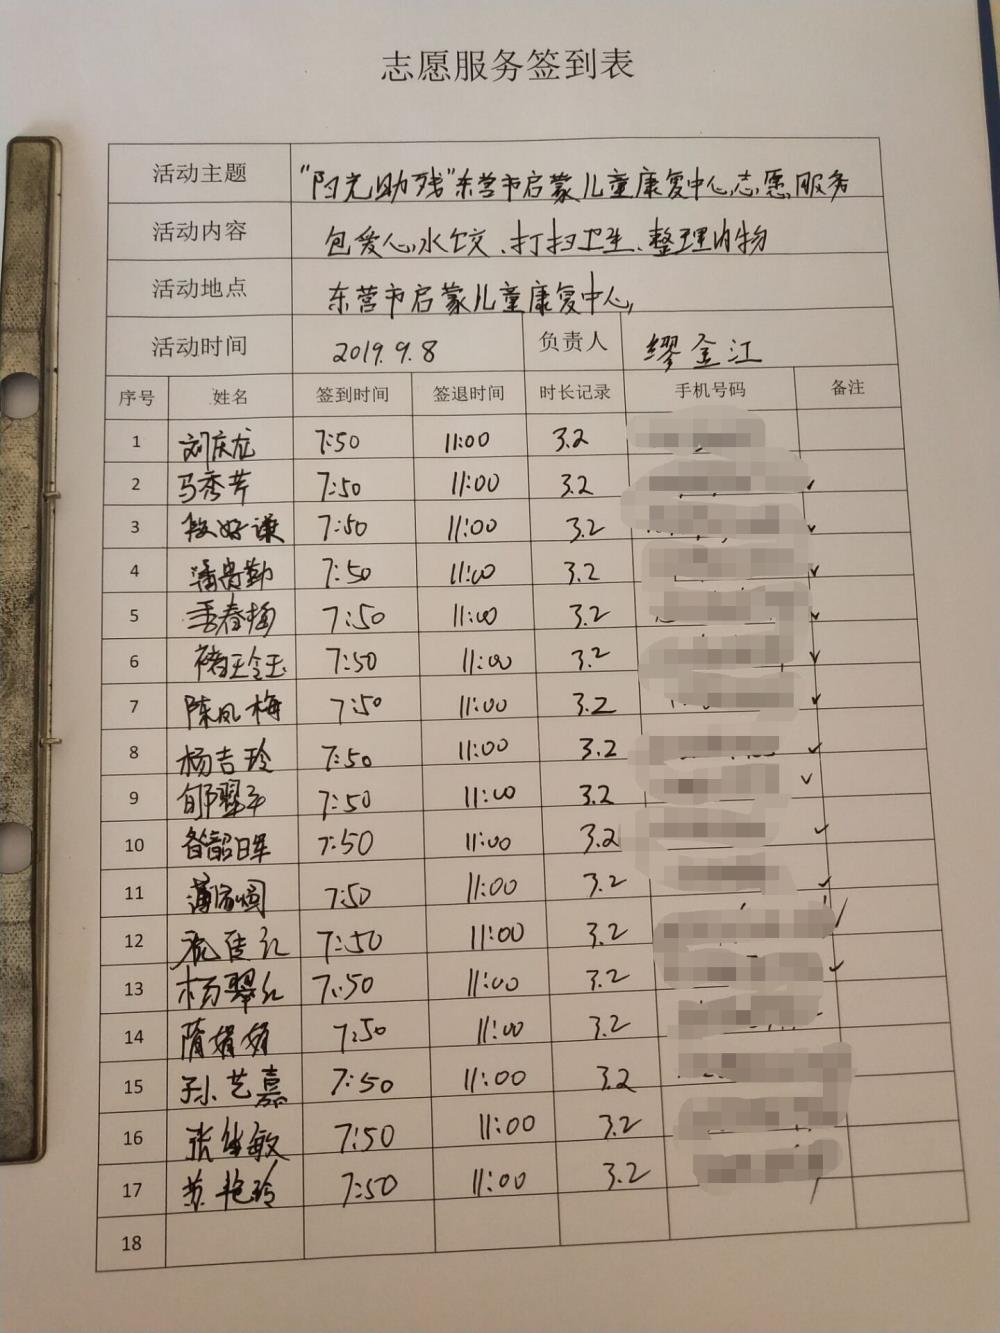 志愿服务签到表
活动主题 "阳光助残"东营市启蒙儿童康复中心志愿服务
活动内容 包爱心水饺、打扫卫生、整理内物
活动地点 东营市启蒙儿童康复中心
活动时间 2019.9.8 负责人 缪金江
序号 姓名 签到时间 签退时间 时长记录 手机号码 备注
1 刘庆龙 7:50 11:00 3.2
2 马秀芹 7:50 11:00 3.2
3 段好谦 7:50 11:00 3.2
4 潘贵勤 7:50 11:00 3.2
5 春梅 7:50 11:00 3.2
6 7:50 11:00 3.2
7 陈凤梅 7:50 11:00 3.2
8 杨吉玲 7:50 11:00 3.2
9 7:50 11:00 3.2
10 昝韶晖 7:50 11:00 3.2
11 7:50 11:00 3.2
12 7:50 11:00 3.2
13 杨翠红 7:50 11:00 3.2
14 隋娟娟 7:50 11:00 3.2
15 孙艺嘉 7:50 11:00 3.2
16 张敏 7:50 11:00 3.2
17 苏艳玲 7:50 11:00 3.2
18